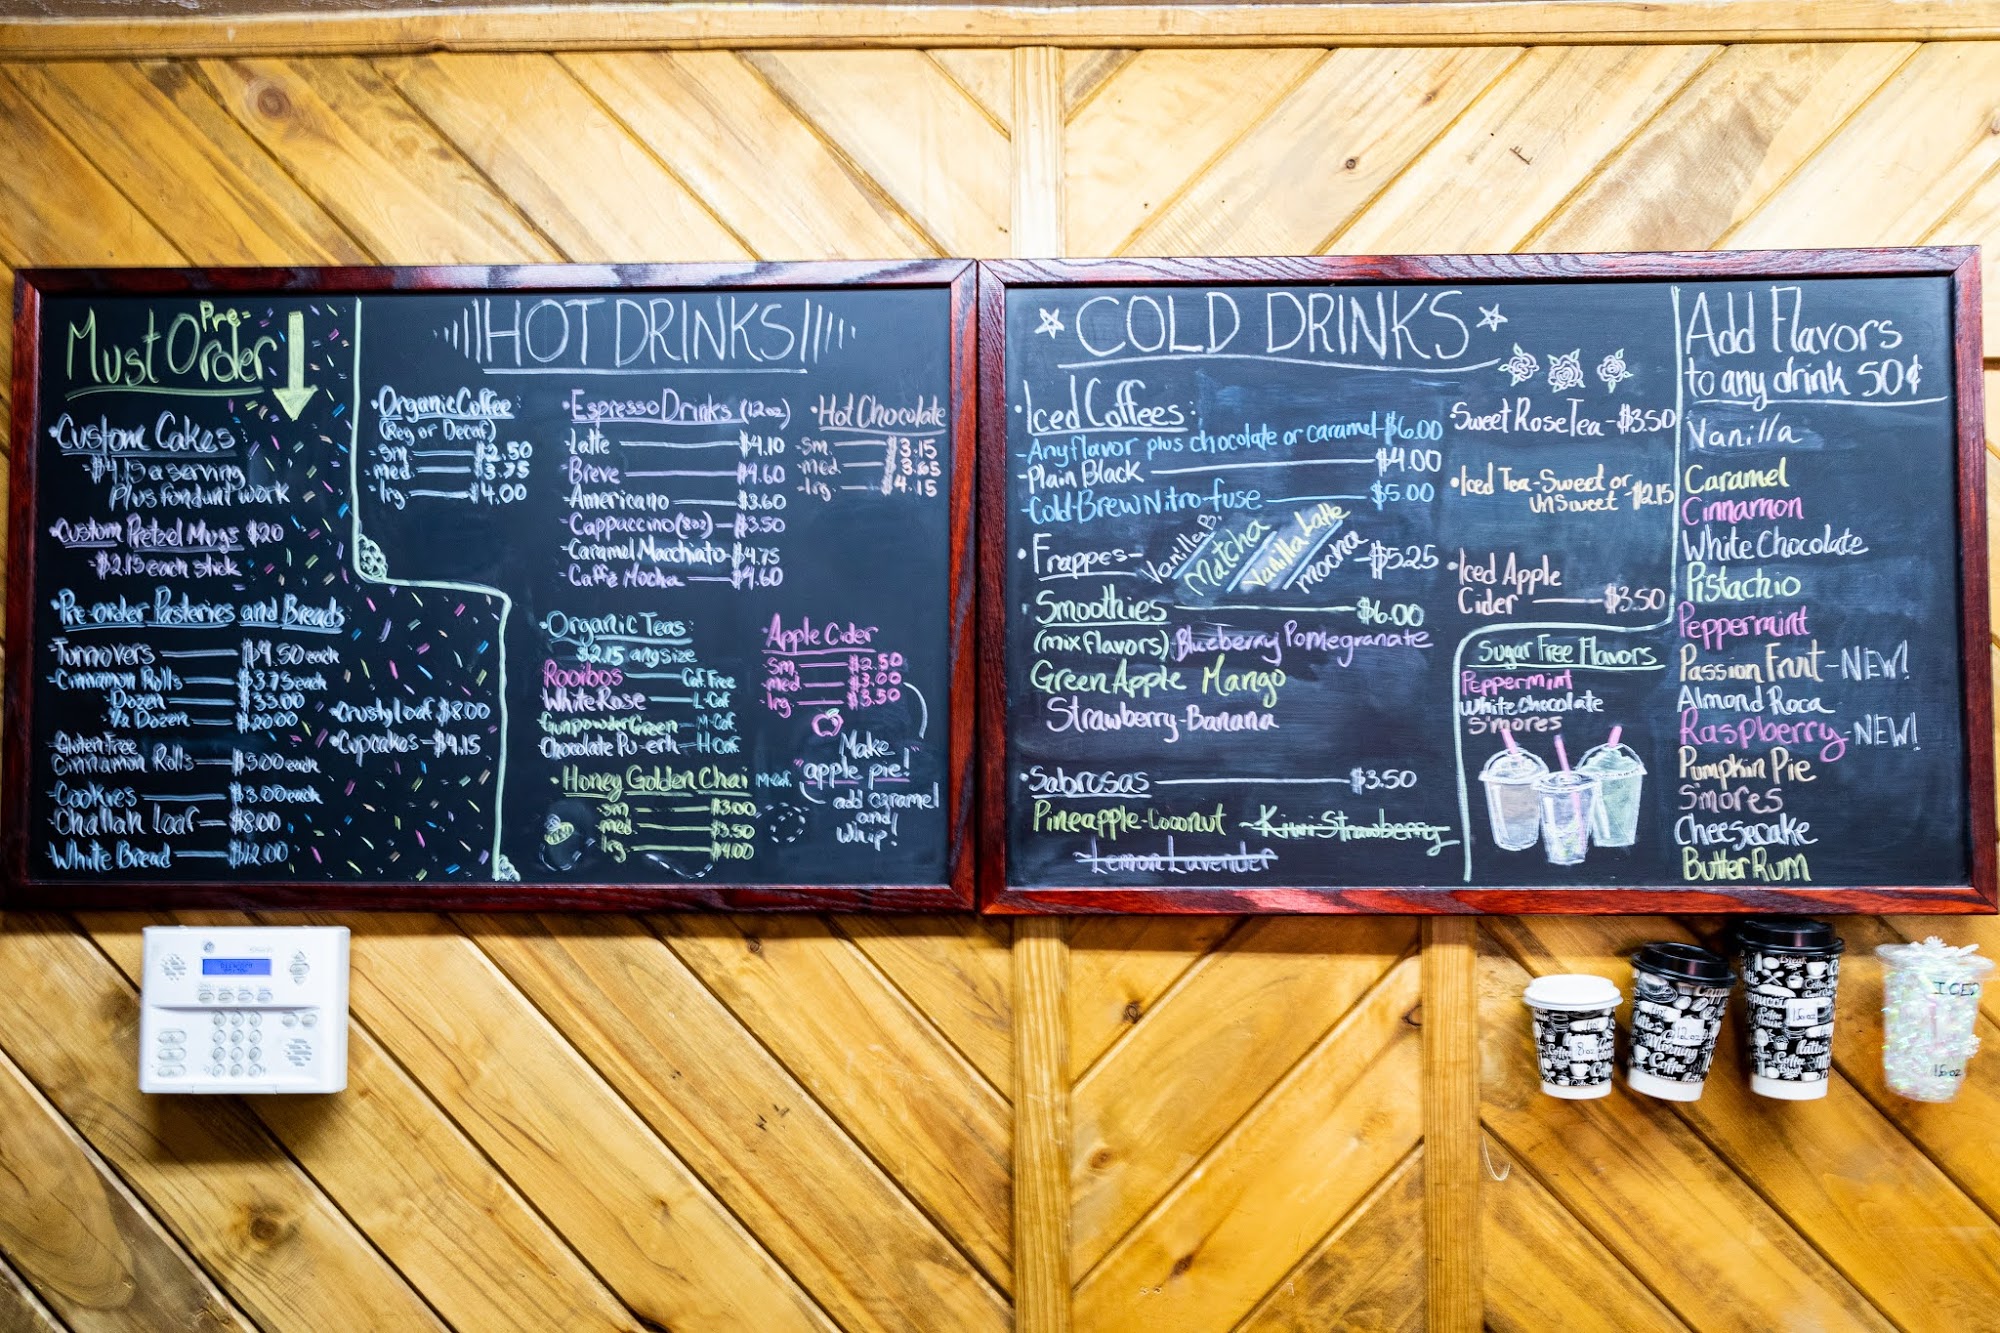 Must Pre-Order
• Custom Cakes
- $4.15 a serving
Plus fondunt work
• Custom Pretzel Mugs $20
- $2.15 each stick
• Pre-order Pasteries and Breads
- Turnovers — $4.50 each
- Cinnamon Rolls — $3.75 each
Dozen — $33.00
½ Dozen — $20.00
- Gluten Free
Cinnamon Rolls — $5.00 each
- Cookies — $3.00 each
- Challah Loaf — $8.00
- White Bread — $12.00
• Crusty Loaf $8.00
• Cupcakes — $4.15
HOT DRINKS
• Organic Coffee:
(Reg or Decaf)
- Sm — $2.50
- med — $3.75
- lrg — $4.00
• Espresso Drinks (12oz)
- Latte — $4.10
- Breve — $4.60
- Americano — $3.60
- Cappaccino (8oz) — $3.50
- Caramel Macchiato — $4.75
- Caffe Mocha — $4.60
• Hot Chocolate
- Sm. — $3.15
- med. — $3.65
- lrg. — $4.15
• Organic Teas:
$2.15 any size
Rooibos — Caf. Free
White Rose — L-Caf
Gunpowder Green — M-Caf
Chocolate Pu-erh — H Caf
• Honey Golden Chai M-Caf.
- Sm — $3.00
- med. — $3.50
- lrg — $4.00
• Apple Cider
- Sm — $2.50
- med — $3.00
- lrg — $3.50
Make
"apple pie!"
add caramel
and
whip!
COLD DRINKS
• Iced Coffees:
- Any flavor plus chocolate or caramel - $6.00
- Plain Black — $4.00
- Cold-Brew Nitro-fuse — $5.00
• Frappes - Vanilla Matcha Vanilla Latte mocha - $5.25
• Smoothies — $6.00
(mix flavors) Blueberry Pomegranate
Green Apple Mango
Strawberry-Banana
• Sabrosas — $3.50
Pineapple-Coconut - Kiwi Strawberry
Lemon Lavender
• Sweet Rose Tea - $3.50
• Iced Tea - Sweet or
UnSweet - $2.15
• Iced Apple
Cider — $3.50
Sugar Free Flavors
Peppermint
White Chocolate
S'mores
Add Flavors
to any drink 50¢
Vanilla
Caramel
Cinnamon
White Chocolate
Pistachio
Peppermint
Passion Fruit - NEW!
Almond Roca
Raspberry - NEW!
Pumpkin Pie
S'mores
Cheesecake
Butter Rum
8 oz
12 oz
16 oz
ICED
16 oz